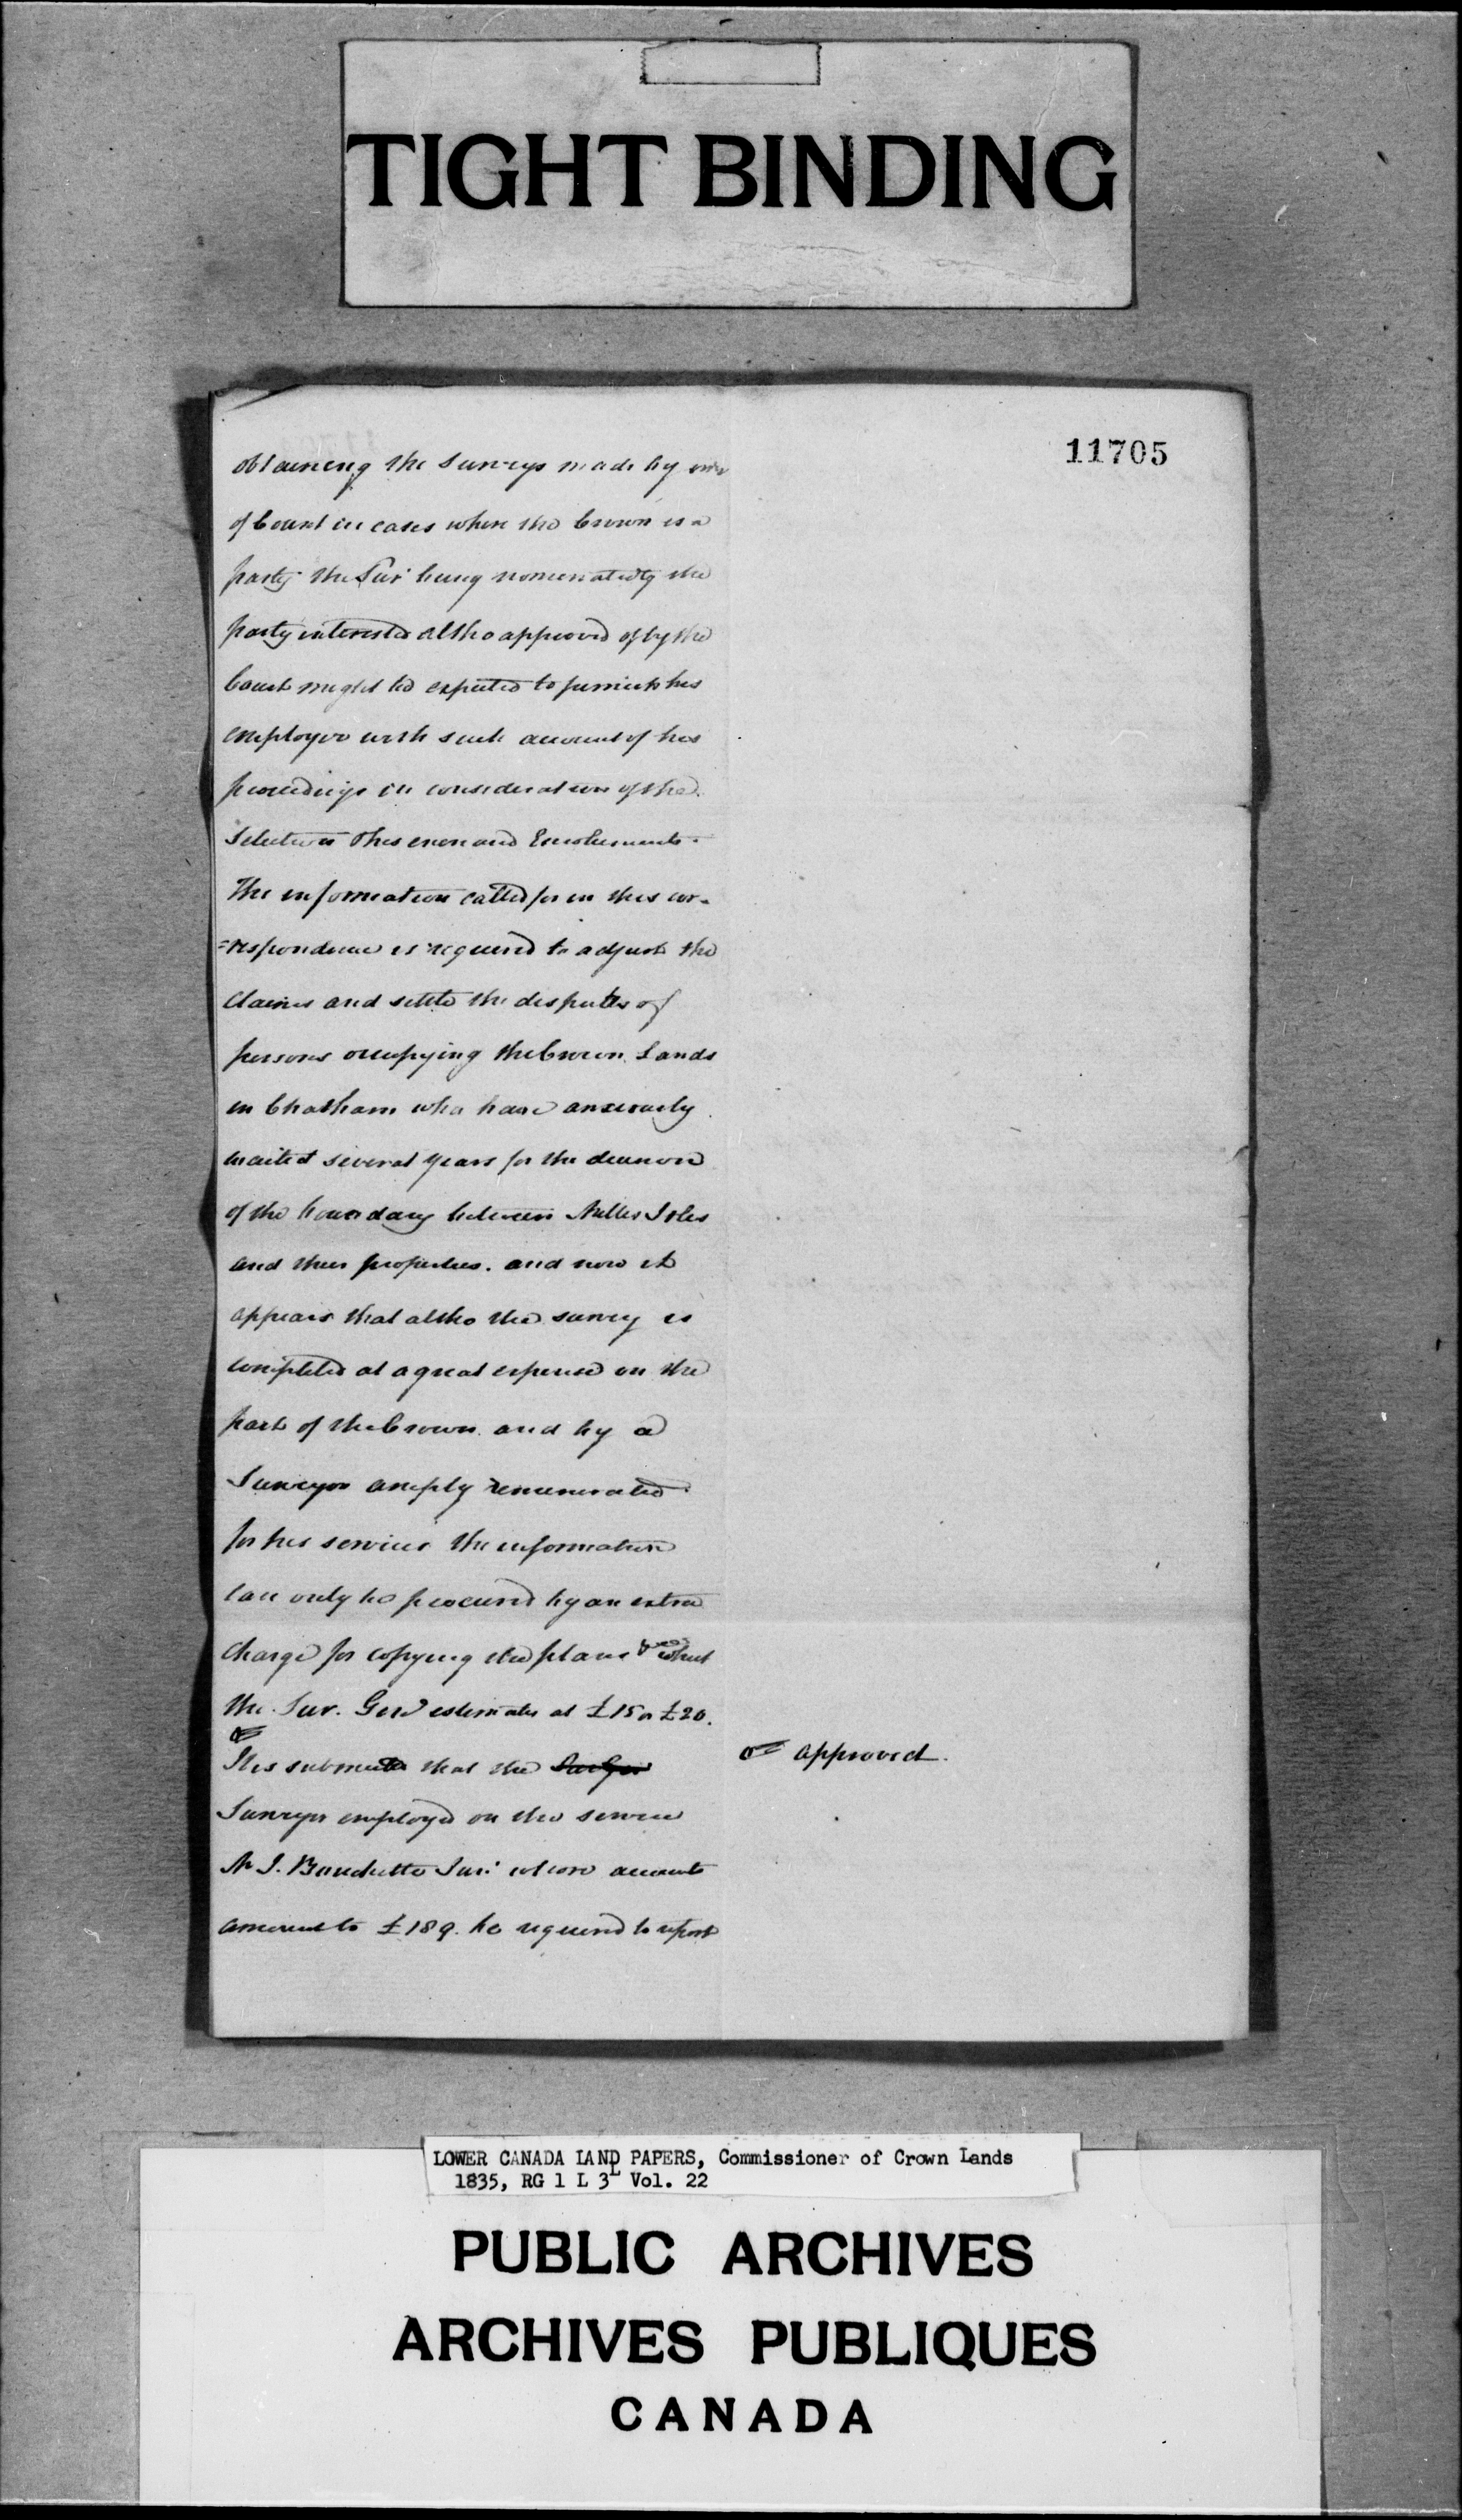 TIGHT BINDING
11705
obtaining the surveys made by
of Court in cases where the Crown is a
party the Surr being nominated by the
party interested altho approved of by the
Court might be expected to furnish his
employer with such account of his
proceedings in consideration of the
selection of his and Emoluments.
The information called for in this cor-
=respondence is required to adjust the
claims and settle the disputes of
persons occupying the Crown Lands
in Chatham who have anxiously
waited several years for the decision
of the boundary between Milles Isles
and their properties. and now it
appears that altho the survey is
completed at a great expense on the
part of the Crown and by a
Surveyor amply remunerated
for his services the information
can only be procured by an extra
charge for copying the plans & which
the Sur. Genl estimates at £15 or £20.
It is submitted that the
Surveyor employed on the service
Mr J. Bouchette Junr whose accounts
amount to £189. be required to report
approved.
LOWER CANADA LAND PAPERS, Commissioner of Crown Lands
1835, RG 1 L 3L Vol. 22
PUBLIC ARCHIVES
ARCHIVES PUBLIQUES
CANADA